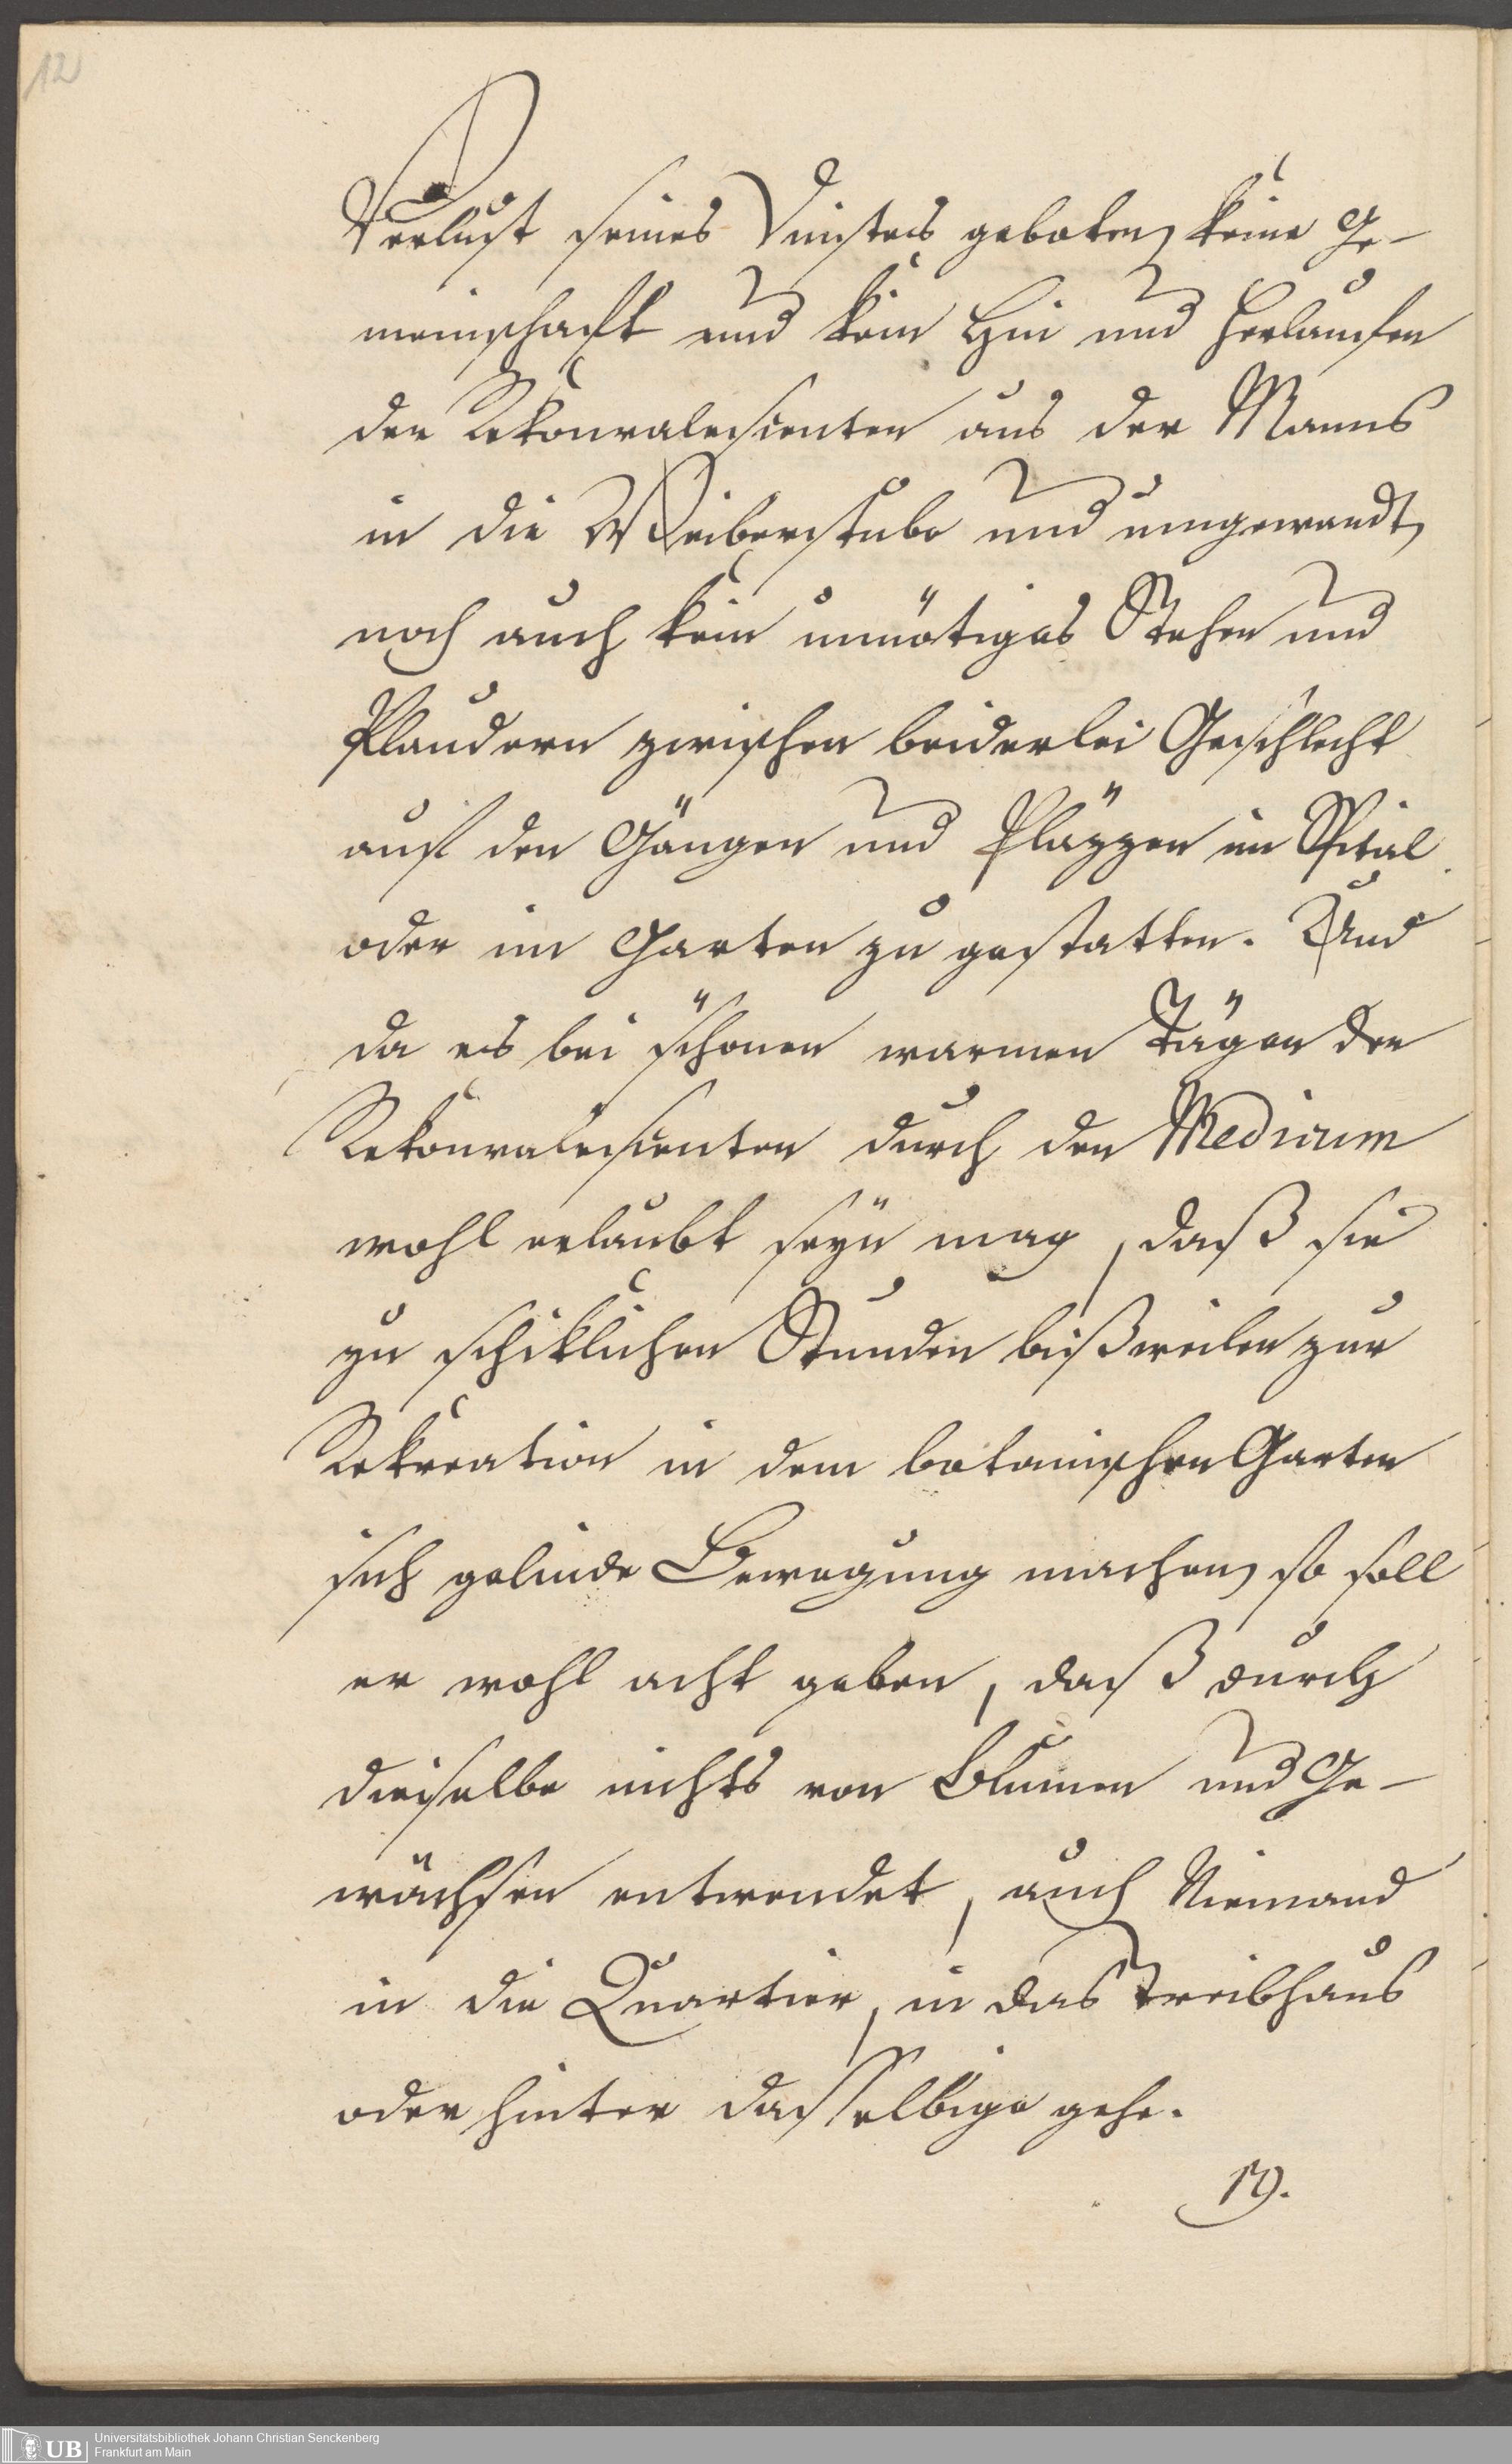 12
Verlust seines Dinstes geboten, keine Ge-
meinschaft und kein Hin und Herlaufen
der Rekonvalescienten aus der Manns
in die Weiberstube und umgewandt,
noch auch kein unnötiges Stehen und
Plaudern zwischen beiderlei Geschlecht
auf den Gängen und Pläzzen im Spital
oder im Garten zu gestatten. Und
da es bei schönen warmen Tägen den
Rekonvalescienten durch den Medicum
wohl erlaubt seyn mag, daß sie
zu schiklichen Stunden bißweilen zur
Rekreation in dem botanischen Garten
sich gelinde Bewegung machen, so soll
er wohl acht geben, daß durch
dieselbe nichts von Blumen und Ge-
wächsen entwendet, auch Niemand
in die Quartier, in das Treibhaus
oder hinter dasselbige gehe.
19.
UB Universitätsbibliothek Johann Christian Senckenberg
Frankfurt am Main